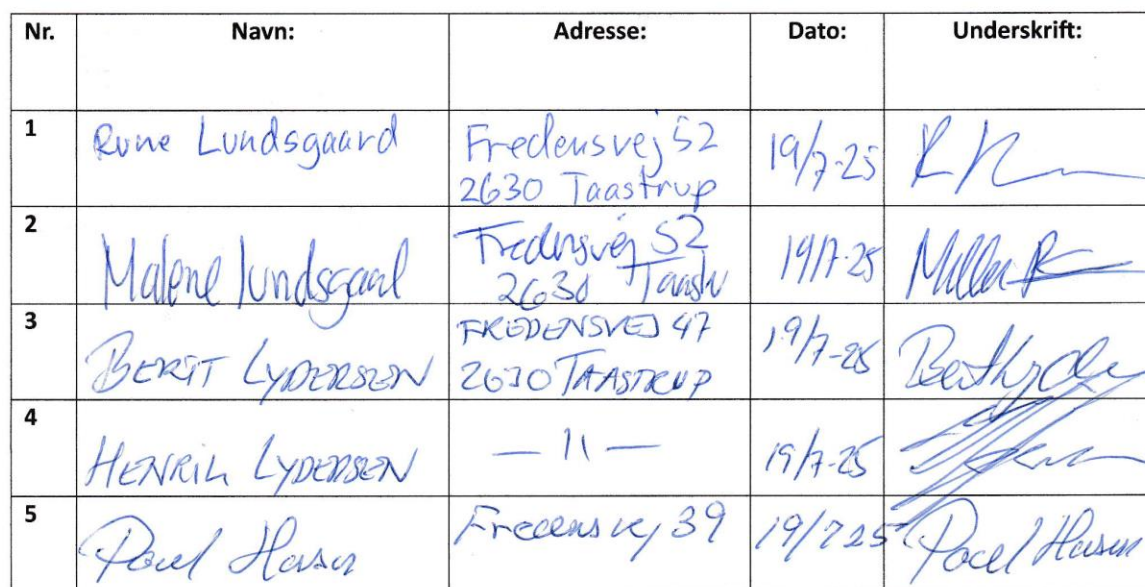 Nr. Navn: Adresse: Dato: Underskrift:
1 Rune Lundsgaard Fredensvej 52 19/7-25
2630 Taastrup
2 Malene Lundsgaard Fredensvej 52 19/7-25
2630 Taastr
3 BERIT LYDERSEN FREDENSVEJ 47 19/7-25
2630 TAASTRUP
4 HENRIK LYDERSEN — 11 — 19/7-25
5 Poul Hansen Fredensvej 39 19/7 25 Poul Hansen